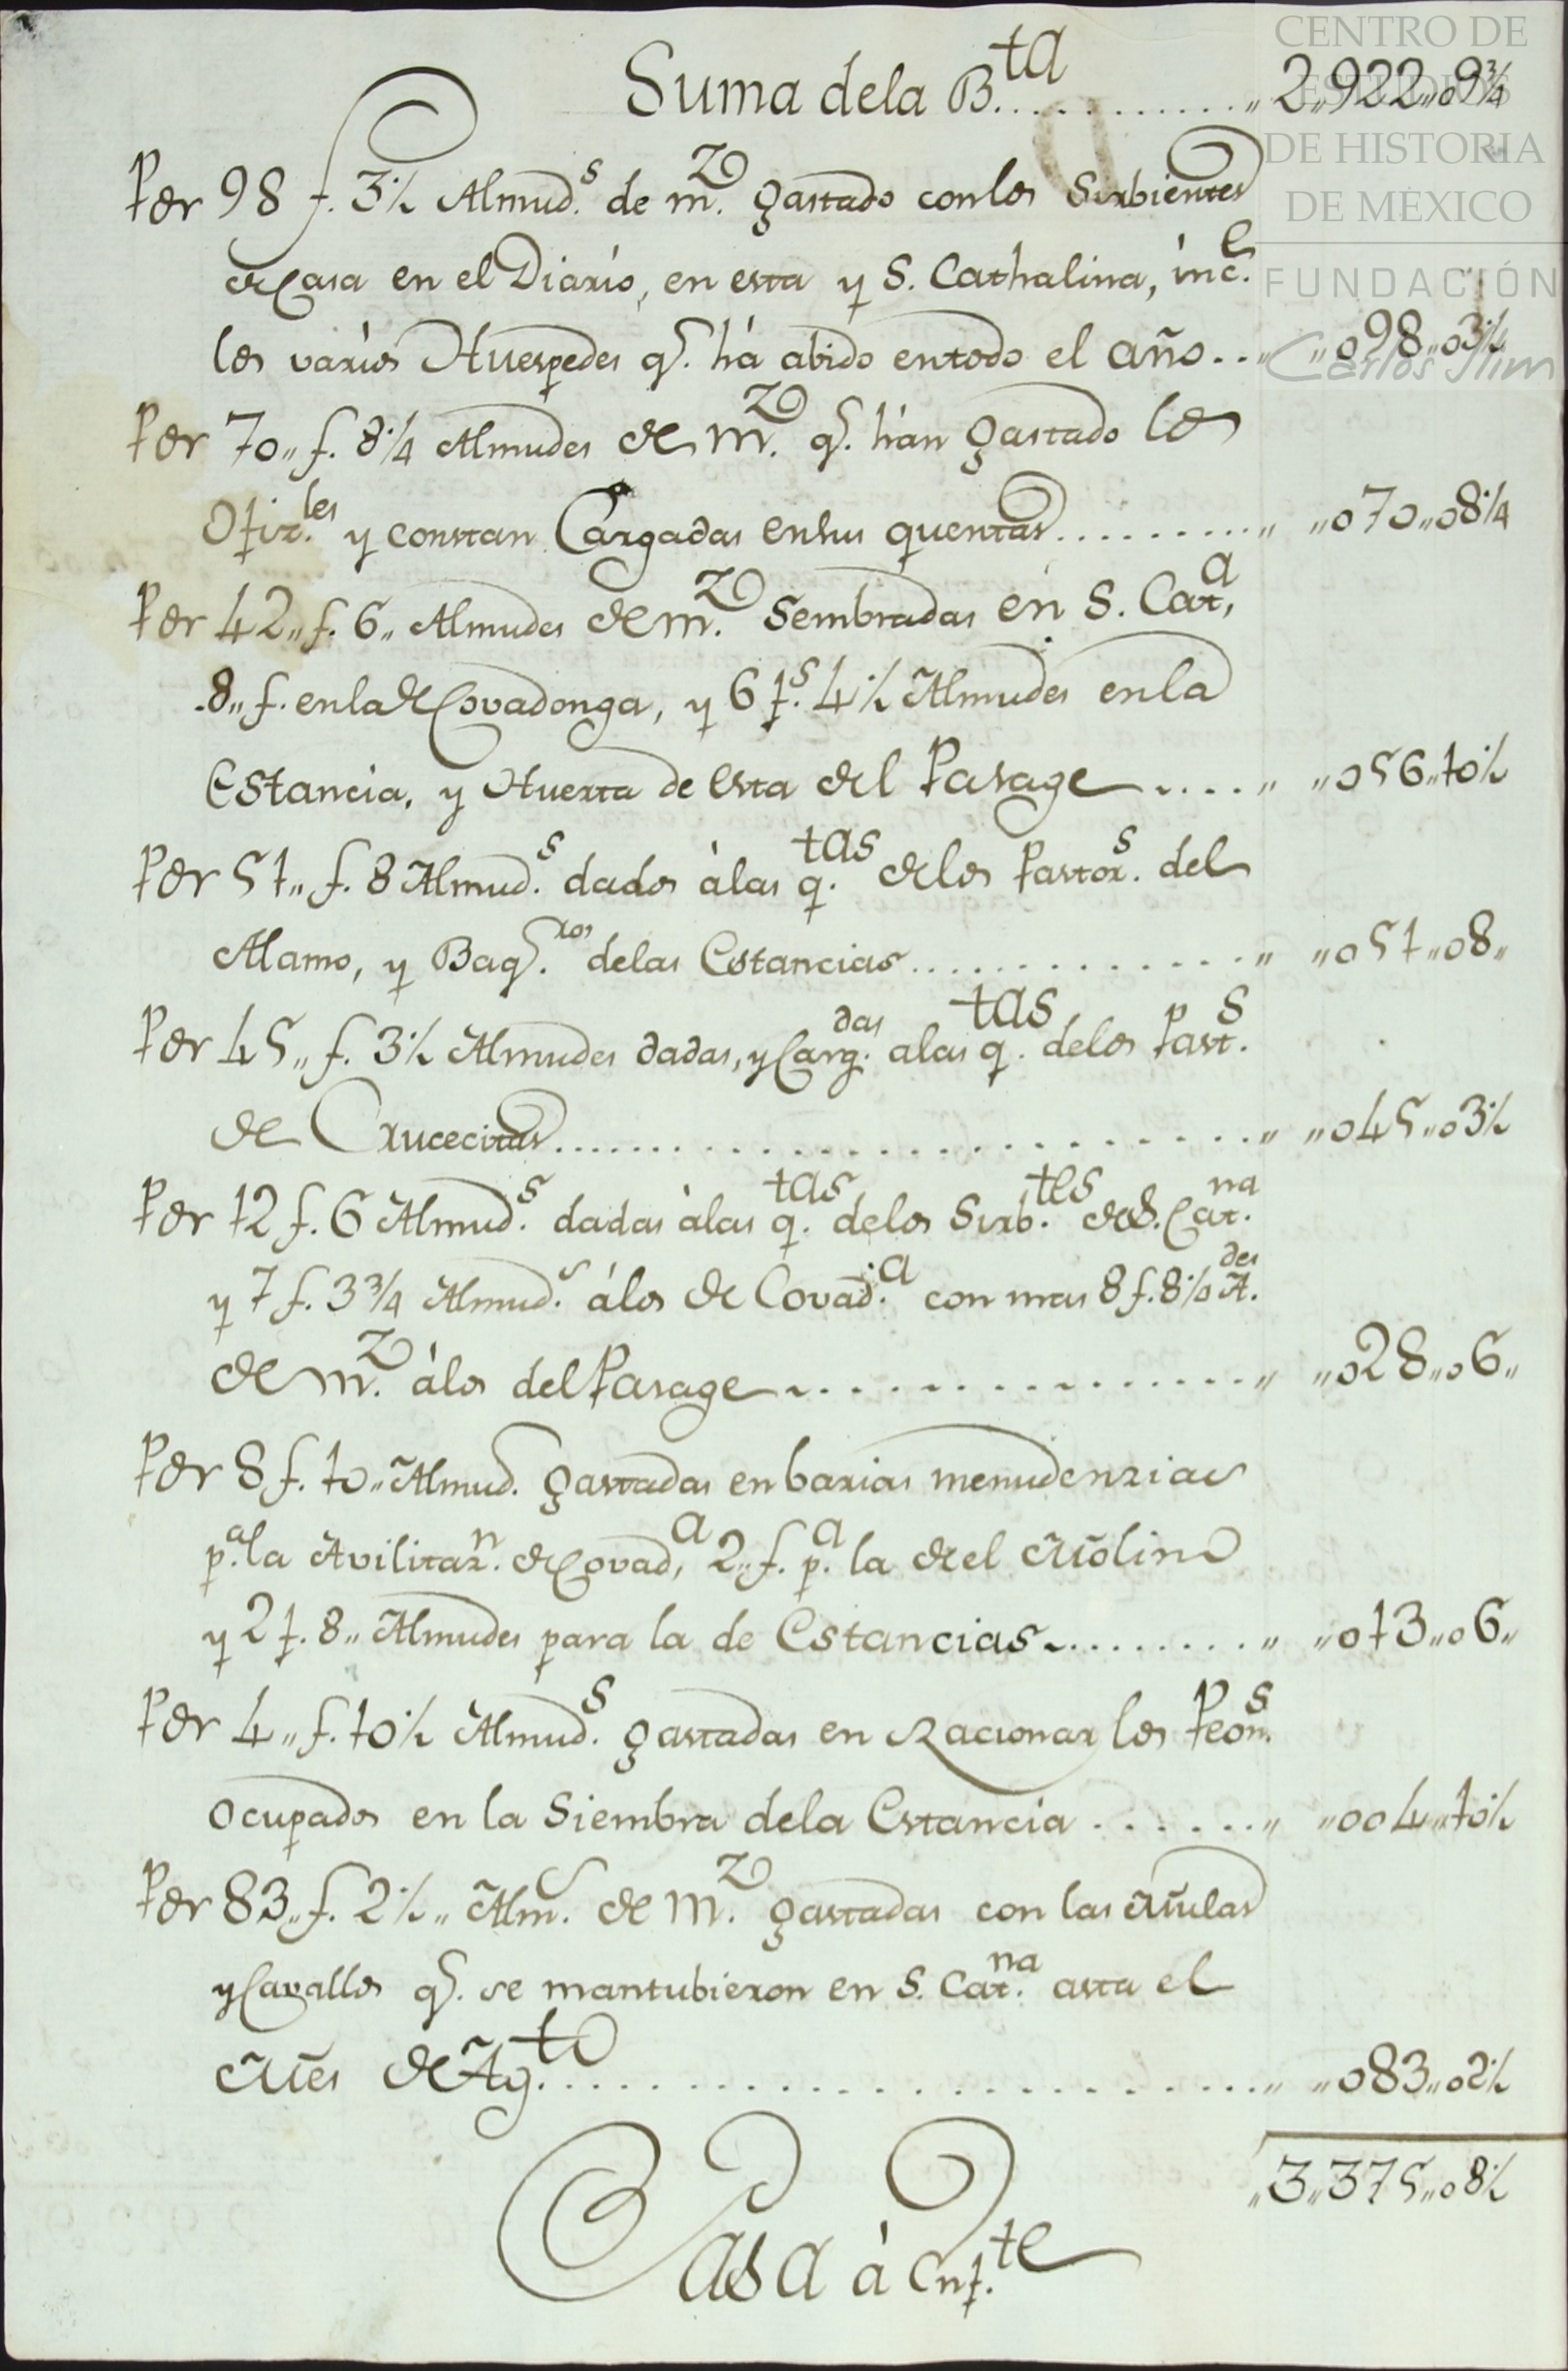 Suma dela B.ta ............ „ 2„922„09¾
Por 98 f. 3½ Almud.s de m.z gastado conlos Sirbientes
de Casa en el Diario, en esta y S. Cathalina, inc.e
los varios Huespedes q.e há abido entodo el año .. „ „098„03½
Por 70„ f. 8¼ Almudes de m.z q.e hán gastado los
Ofiz.les y constan Cargadas ensus quentas .......... „ „070„08¼
Por 42„ f. 6„ Almudes de m.z Sembradas en S. Cat.a,
8„ f. enla de Covadonga, y 6 f.s 4½ Almudes enla
Estancia, y Huerta de esta del Pasage ..... „ „056„10½
Por 51„ f. 8 Almud.s dados álas q.tas delos Pastor.s del
Alamo, y Baq.ros delas Estancias .............. „ „051„08„
Por 45„ f. 3½ Almudes dadas, y Carg.das alas q.tas delos Past.s
de Crucecitas ........................ „ „045„03½
Por 12 f. 6 Almud.s dadas álas q.tas delos Sirb.tes de S. Cat.na
y 7 f. 3¾ Almud.s álos de Covad.a con mas 8 f. 8½ A.des
de m.z álos del Pasage ................. „ „028„06„
Por 8 f. 10„ Almud. gastadas en barias menudenzias
p.a la Avilitaz.n de Covad.a, 2„ f. p.a la de el Molino
y 2 f. 8„ Almudes para la de Estancias ......... „ „013„06„
Por 4„ f. 10½ Almud.s gastadas en Racionar los Peon.s
Ocupados en la Siembra dela Estancia ....... „ „004„10½
Por 83„ f. 2½„ Alm.s de m.z gastadas con las Mulas
y Cavallos q.e se mantubieron en S. Cat.na asta el
Mes de Ag.to ........................ „ „083„02½
„3„375„08½
Pasa á Enf.te
CENTRO DE
ESTUDIOS
DE HISTORIA
DE MÉXICO
FUNDACIÓN
Carlos Slim